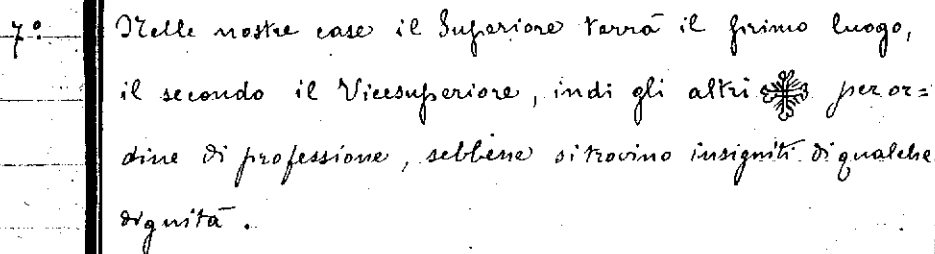 7º Nelle nostre case il Superiore terrà il primo luogo,
il secondo il Vicesuperiore, indi gli altri per or=
dine di professione, sebbene si trovino insigniti di qualche
dignità.